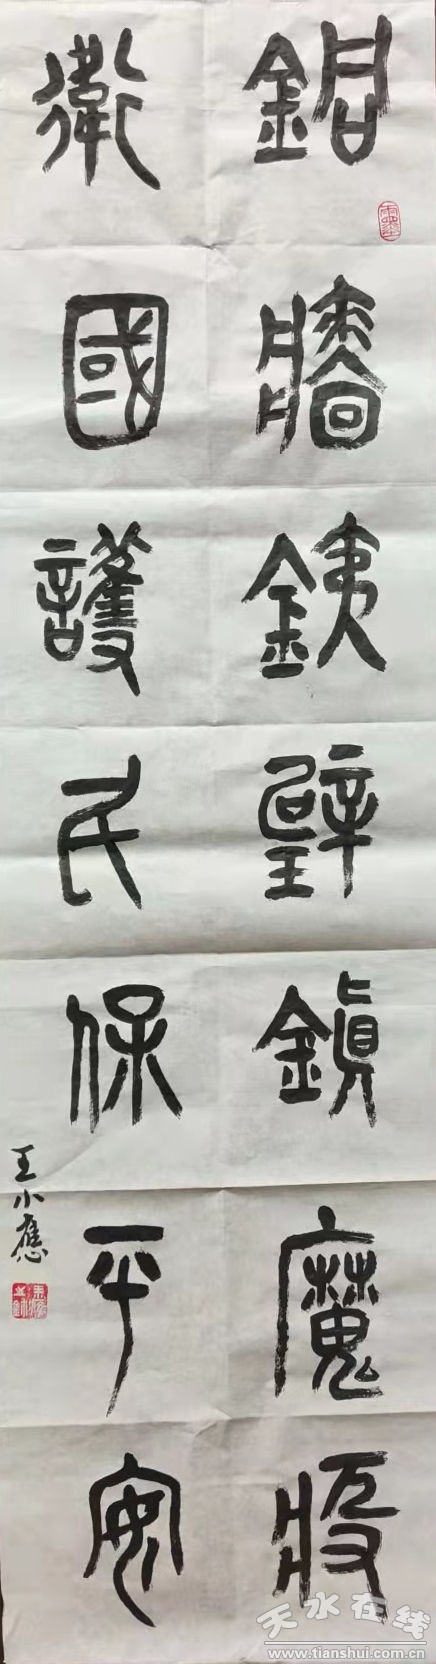 銅牆銕壁鎮魔疫
衛國護民保平安
王小應
天水在线
www.tianshui.com.cn